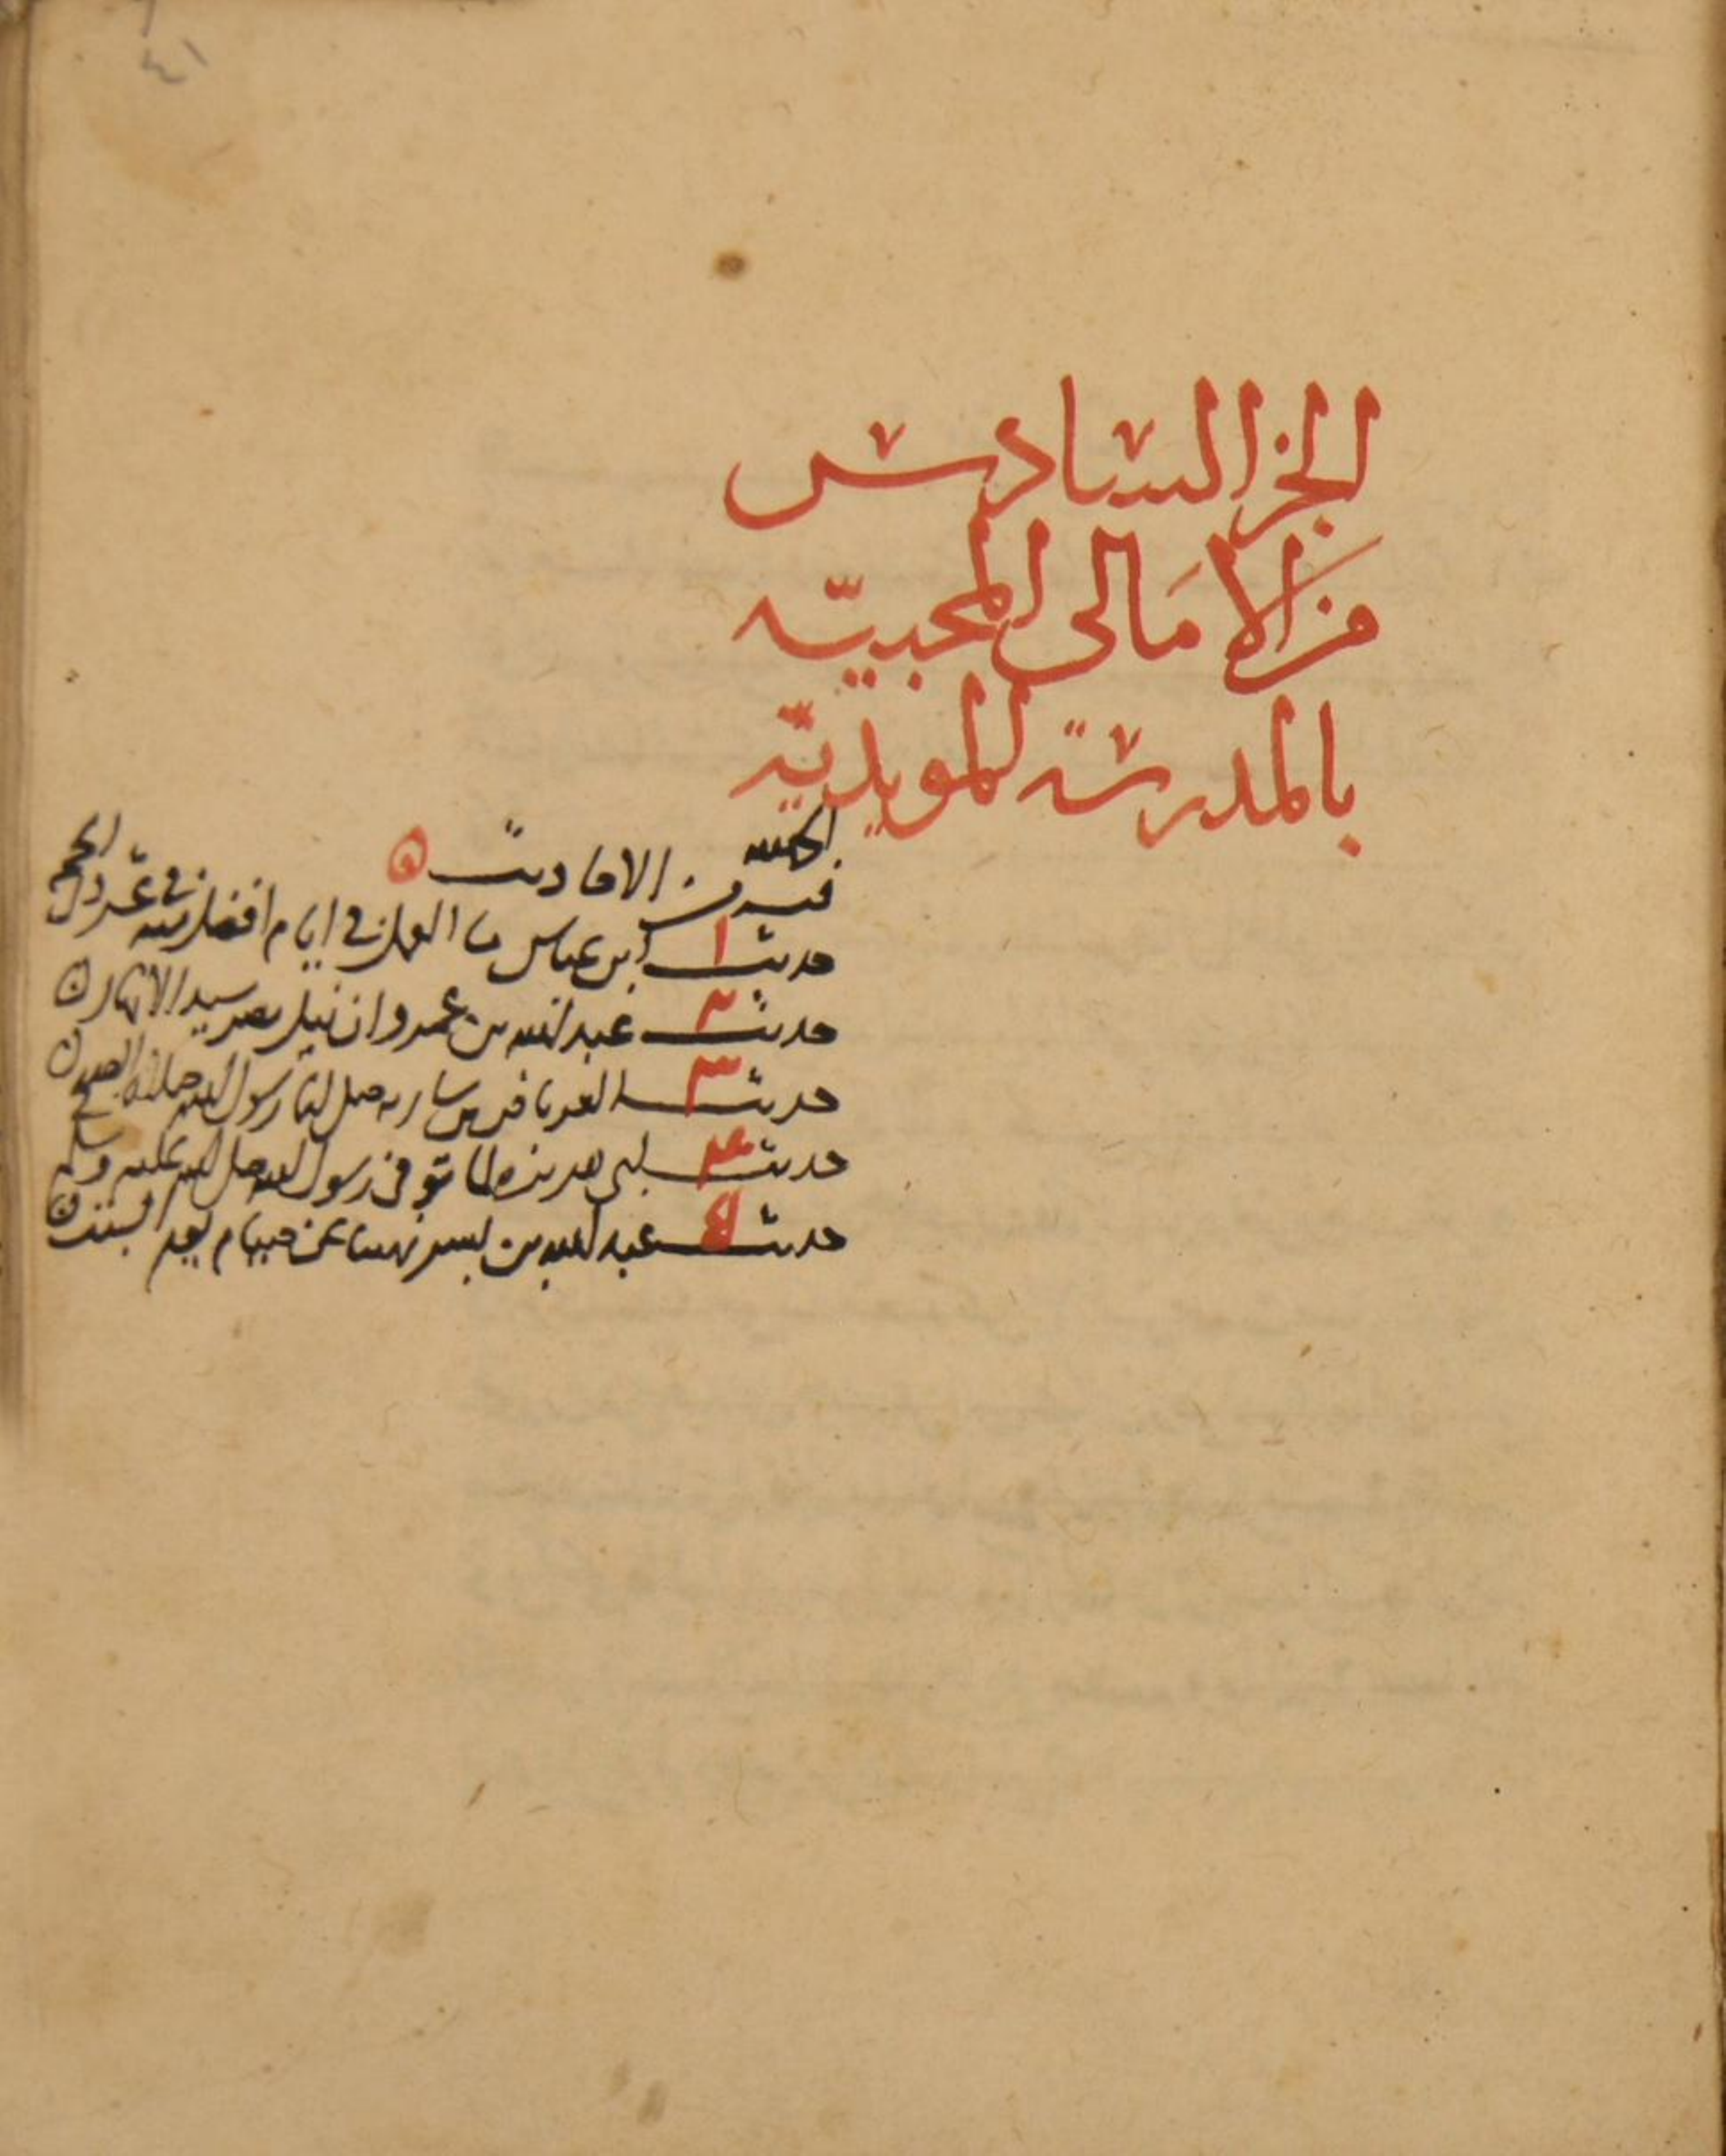 ٤١
الجز السادس
من الامالى المحبيّه
بالمدرسة المويديّه
فيه من الاحاديث
حديث ١ ابن عباس ما العمل فى ايام افضل منه فى عشر ذى الحجه
حديث ٢ عبد الله بن عمرو ان نيل مصر سيد الانهار
حديث ٣ العرباض بن ساريه صلى لنا رسول الله صلاة الصبح
حديث ٤ ابى هريره لما توفى رسول الله صلى الله عليه وسلم
حديث ٥ عبد الله بن بسر نهينا عن صيام يوم السبت